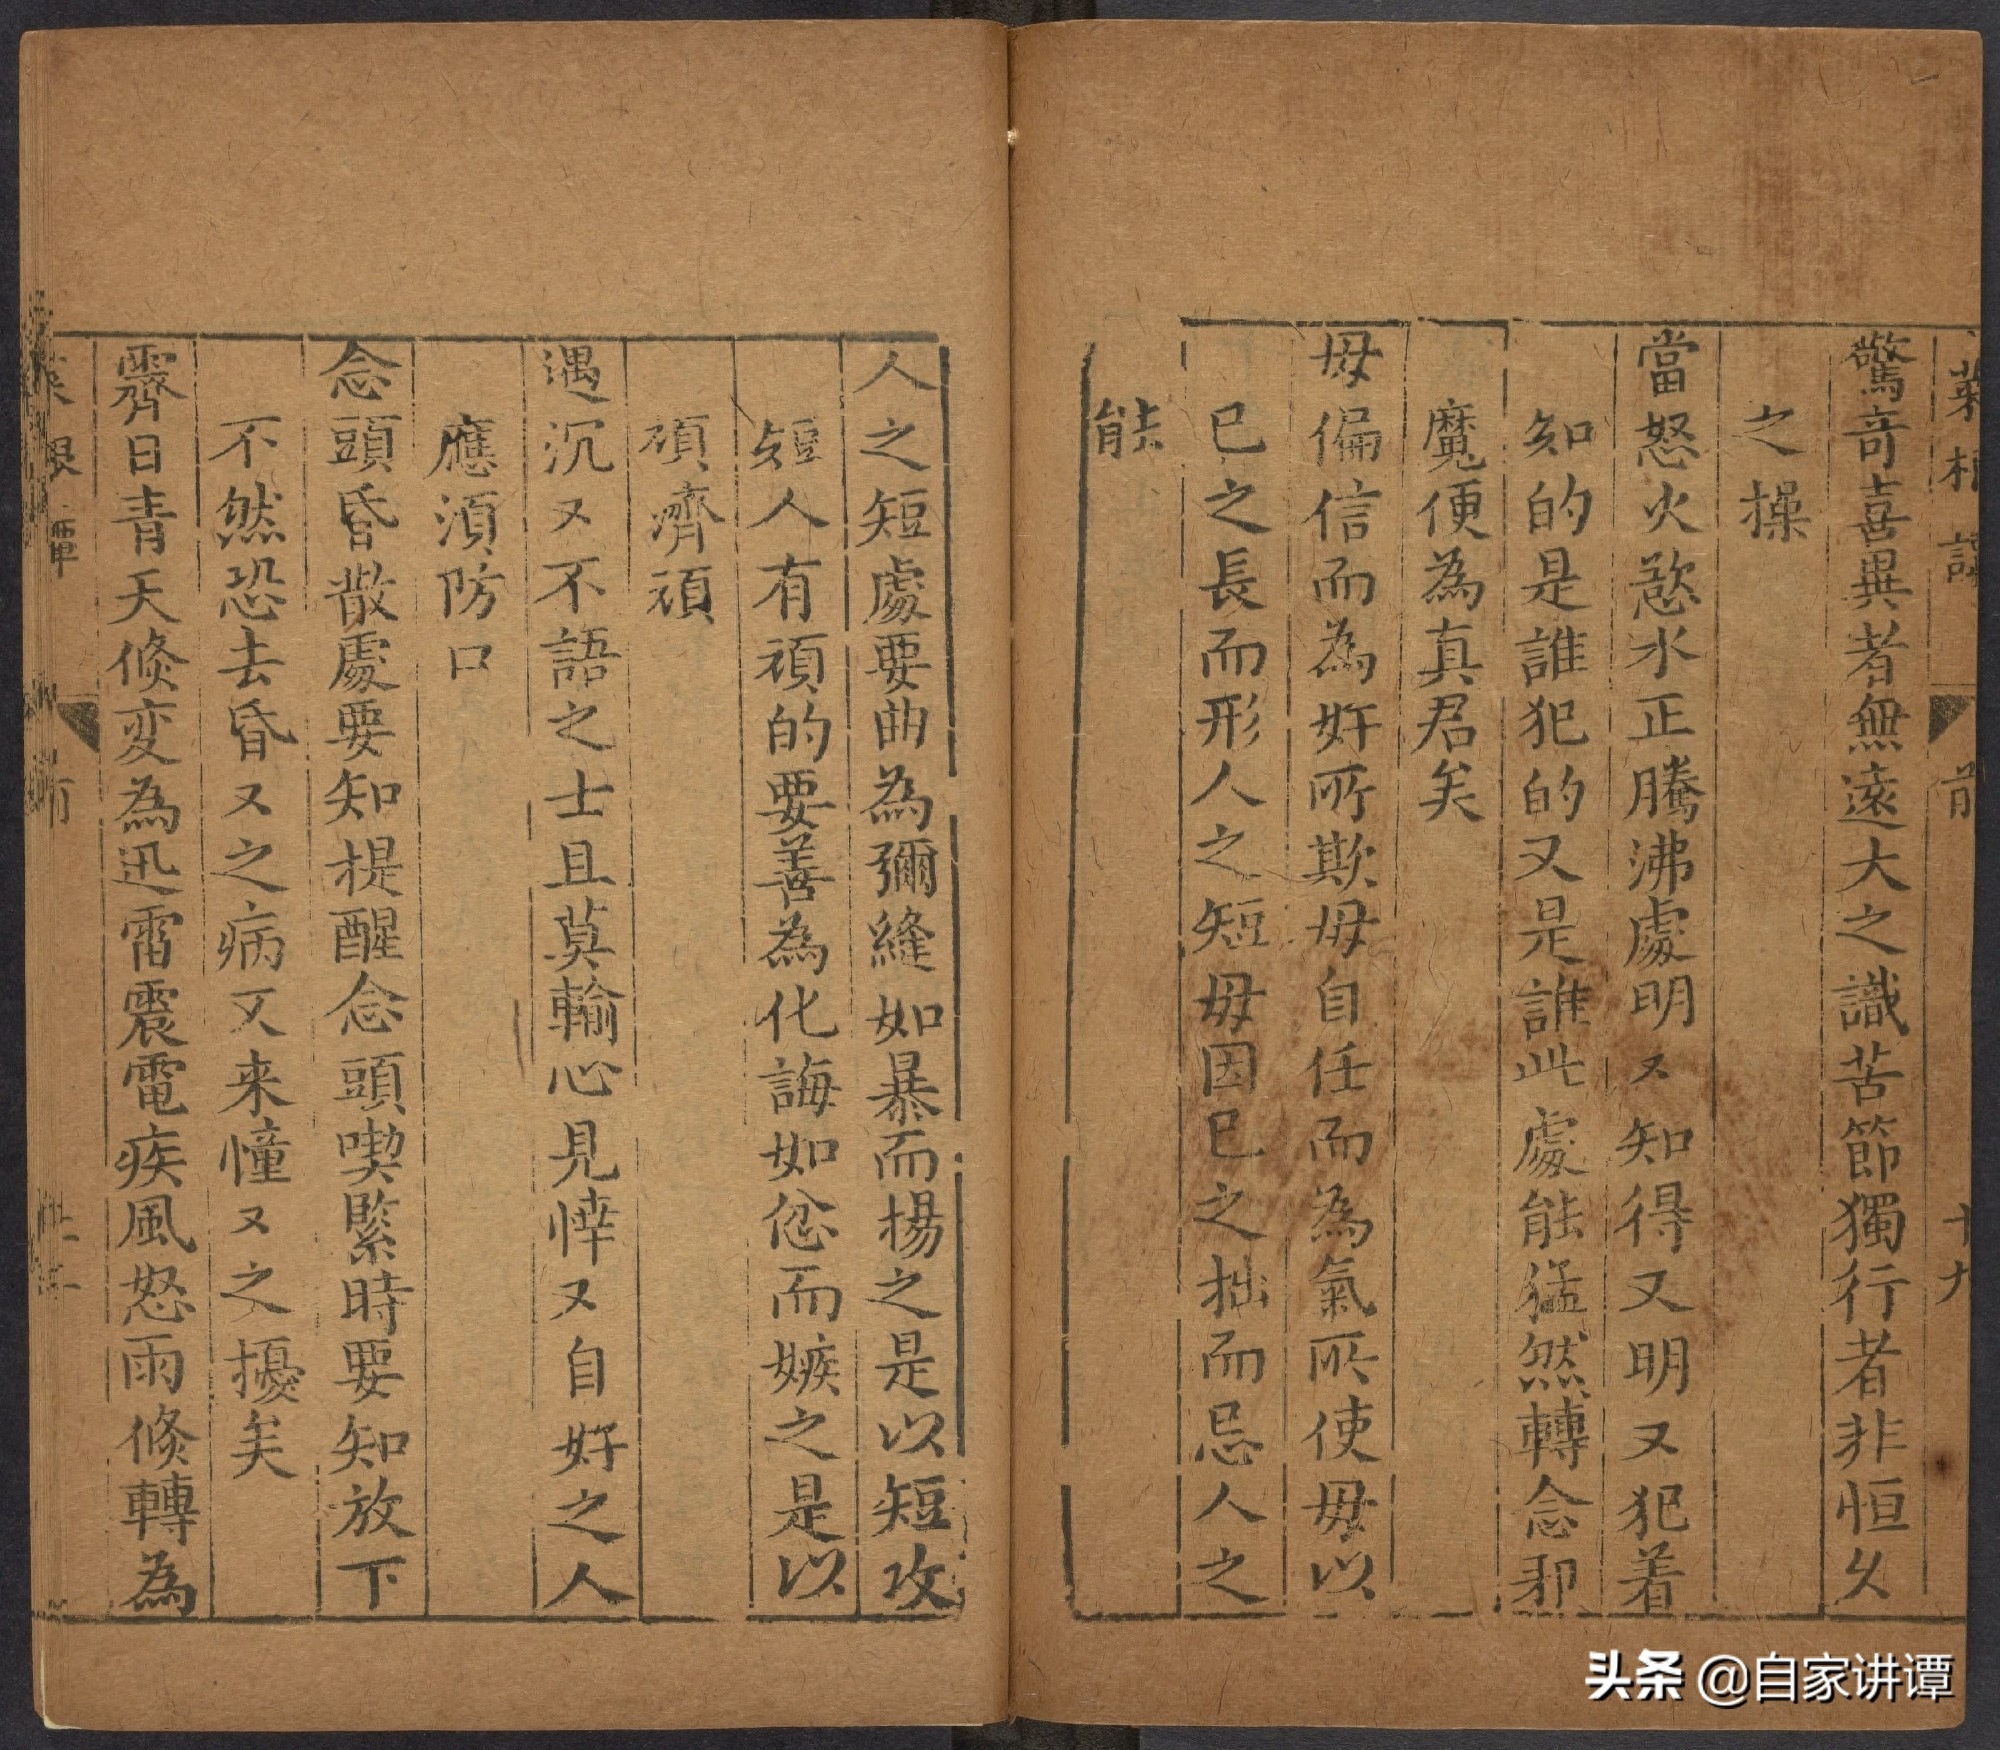 菜根譚 前 十九
驚奇喜異者無遠大之識苦節獨行者非恒久
之操
當怒火慾水正騰沸處明〻知得又明〻犯着
知的是誰犯的又是誰此處能猛然轉念邪
魔便為真君矣
毋偏信而為奸所欺毋自任而為氣所使毋以
已之長而形人之短毋因已之拙而忌人之
能
人之短處要曲為彌縫如暴而揚之是以短攻
短人有頑的要善為化誨如忿而嫉之是以
頑濟頑
遇沉〻不語之士且莫輸心見悻〻自好之人
應須防口
念頭昏散處要知提醒念頭喫緊時要知放下
不然恐去昏〻之病又来憧〻之擾矣
霽日青天倐変為迅雷震電疾風怒雨倐轉為
菜根譚 前
头条 @自家讲谭